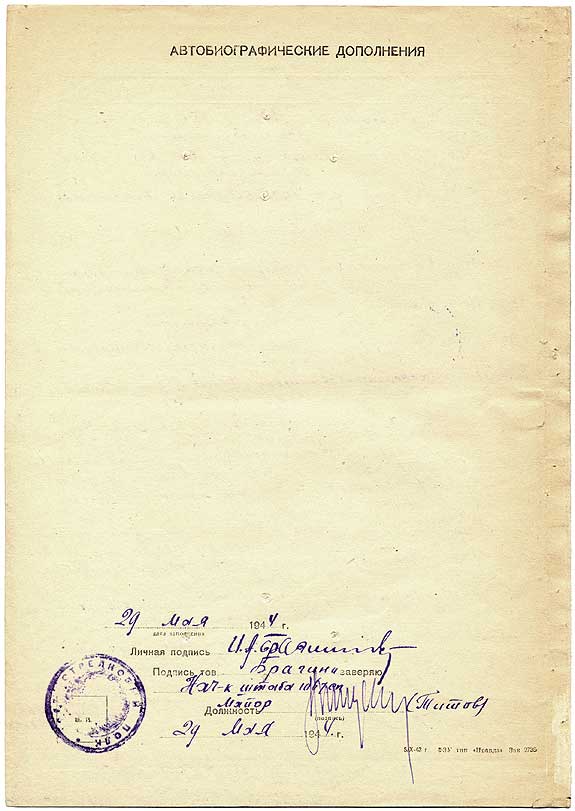 АВТОБИОГРАФИЧЕСКИЕ ДОПОЛНЕНИЯ
29 мая 1944 г.
дата заполнения
Личная подпись
Подпись тов. Брагина заверяю
Нач-к штаба
майор (Титов)
Должность
(подпись)
29 мая 1944 г.
СТРЕЛКОВЫЙ ПОЛК
5/X-43 г. ФЗУ тип «Правда» Зак 2735